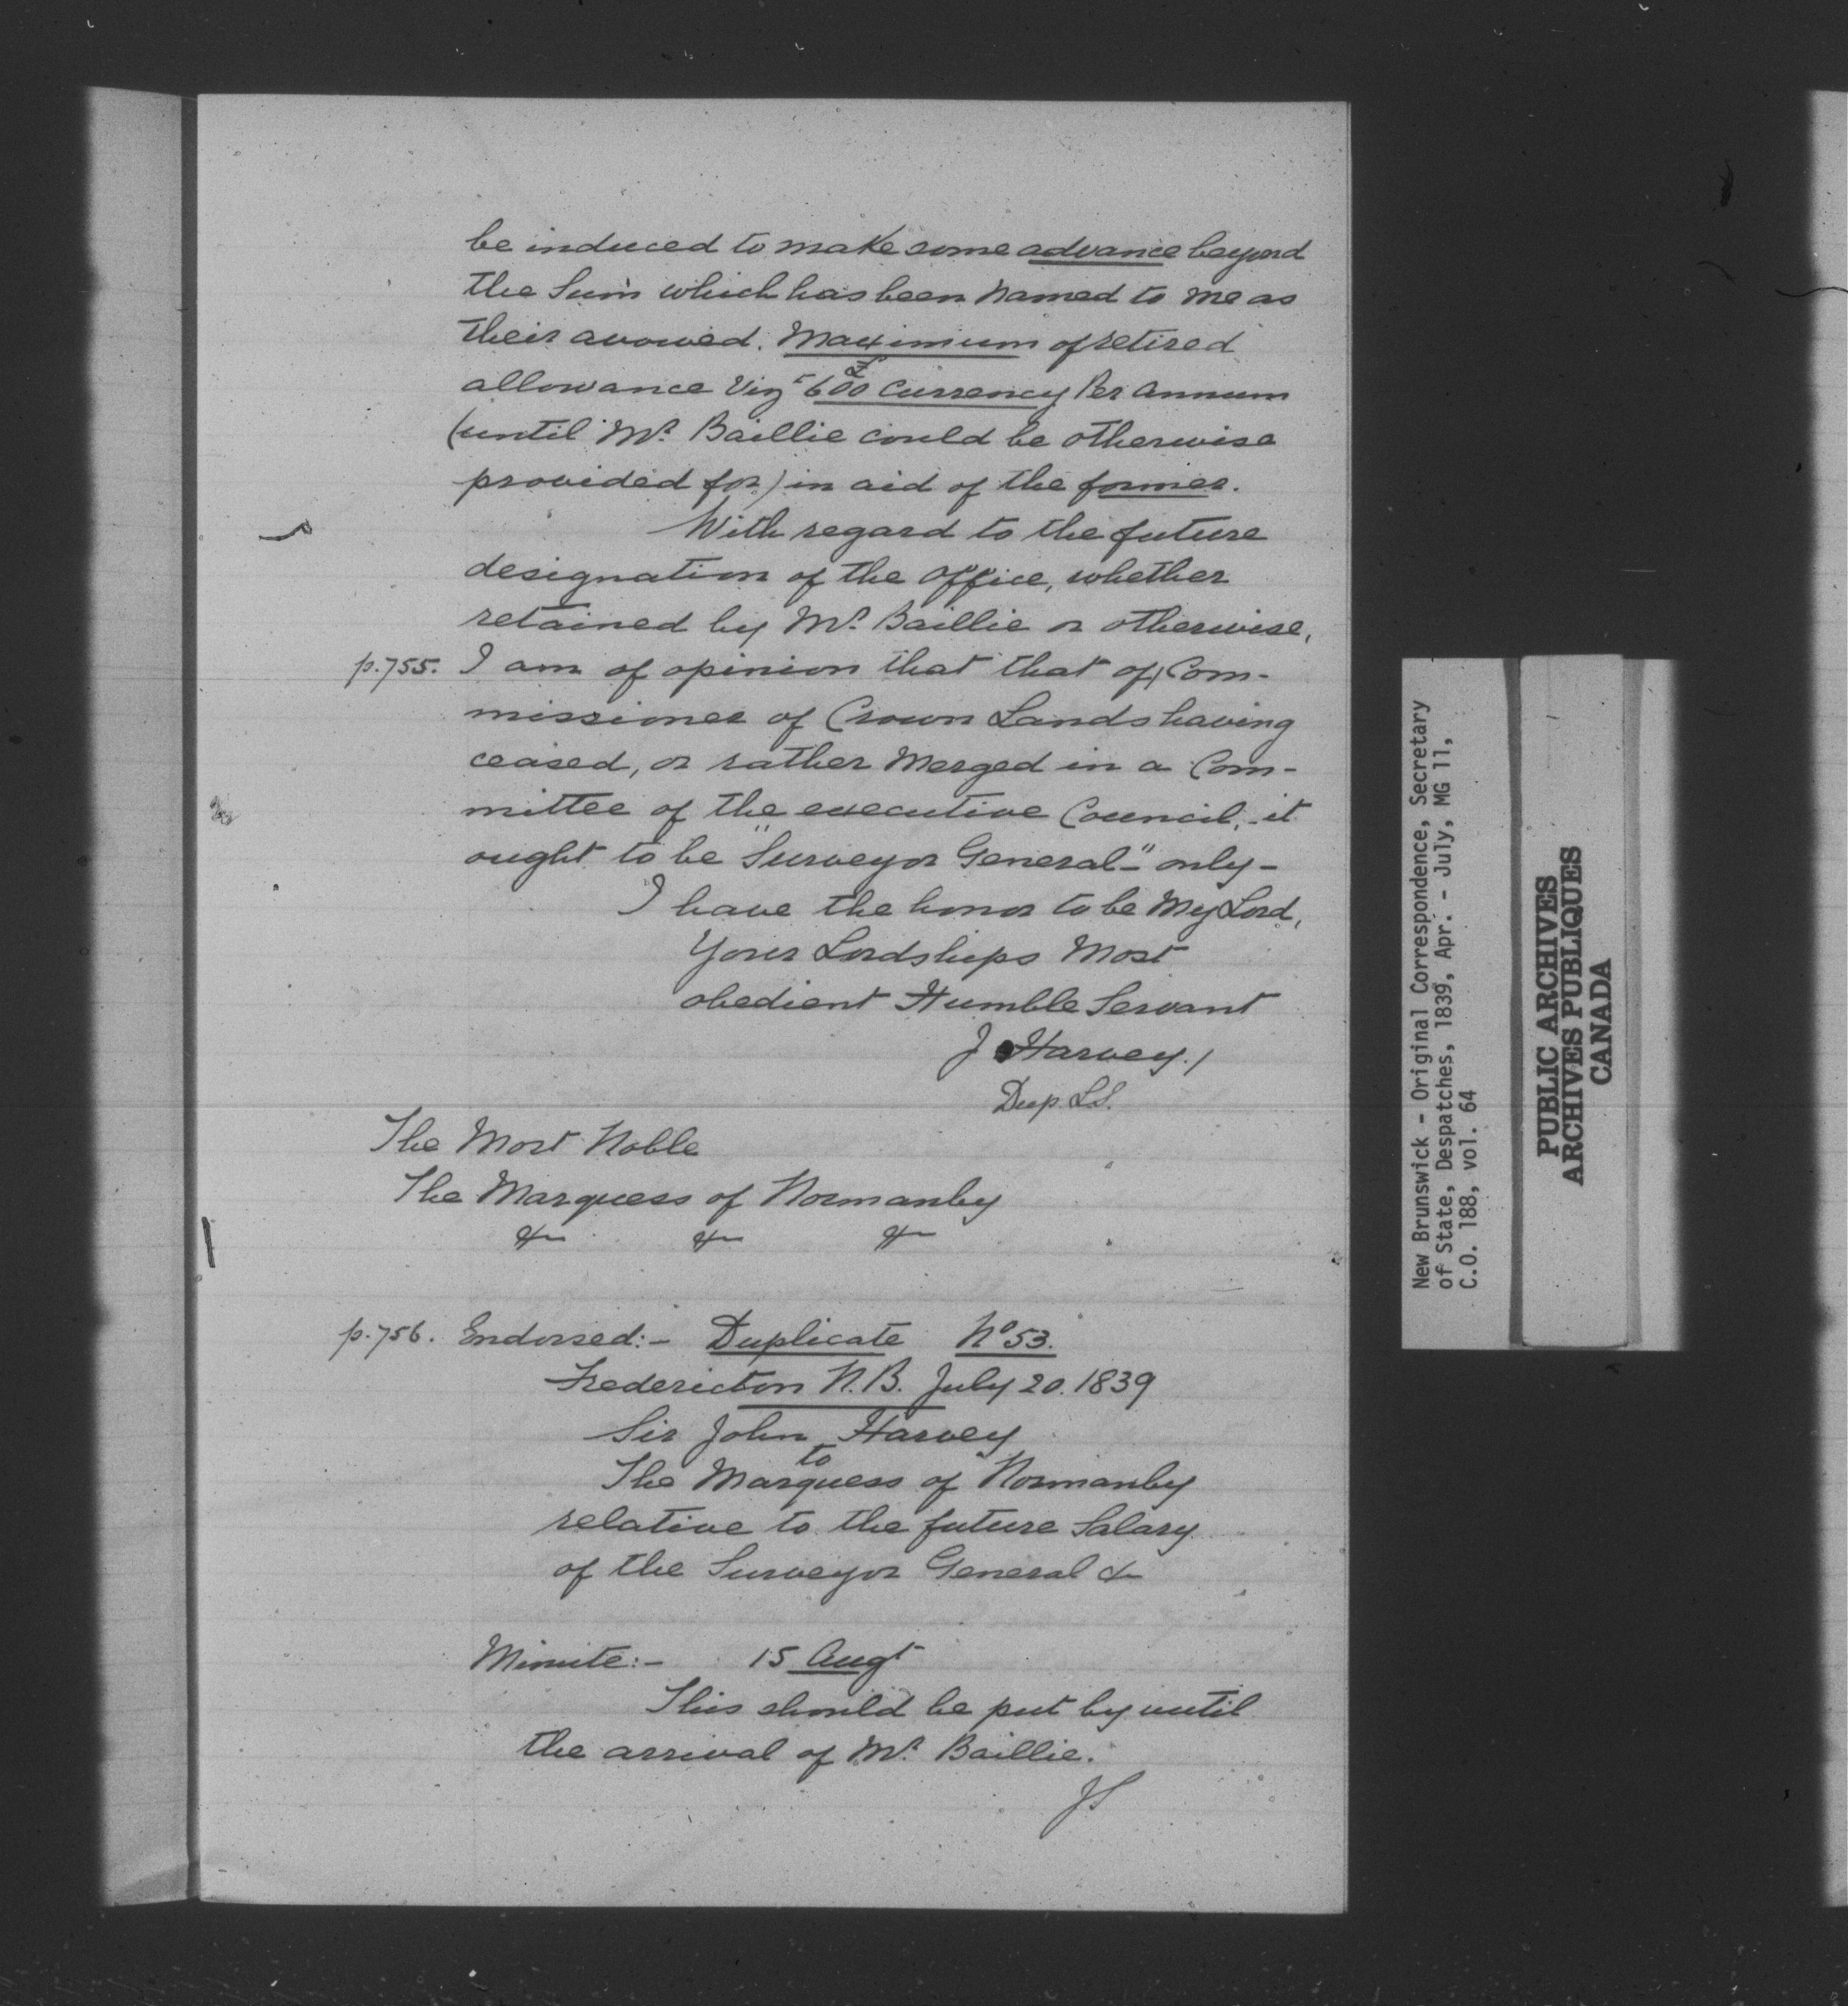 be induced to make some advance beyond
the Sum which has been named to me as
their avowed. Maximum of retired
allowance Vizt £600 Currency Per Annum
(until Mr. Baillie could be otherwise
provided for) in aid of the former.
With regard to the future
designation of the office, whether
retained by Mr. Baillie or otherwise,
p.755. I am of opinion that that of Com-
missioner of Crown Lands having
ceased, or rather Merged in a Com-
mittee of the executive Council, it
ought to be "Surveyor General" only-
I have the honor to be My Lord,
Your Lordships Most
obedient Humble Servant
J Harvey./
Dup. L.S.
The Most Noble
The Marquess of Normanby
&c &c &c
p.756. Endorsed:- Duplicate No 53.
Fredericton N.B. July 20. 1839
Sir John Harvey
to
The Marquess of Normanby
relative to the future Salary
of the Surveyor General &c
Minute:- 15 Augt
This should be put by until
the arrival of Mr. Baillie.
JS
New Brunswick - Original Correspondence, Secretary
of State, Despatches, 1839, Apr. - July, MG 11,
C.O. 188, vol. 64
PUBLIC ARCHIVES
ARCHIVES PUBLIQUES
CANADA